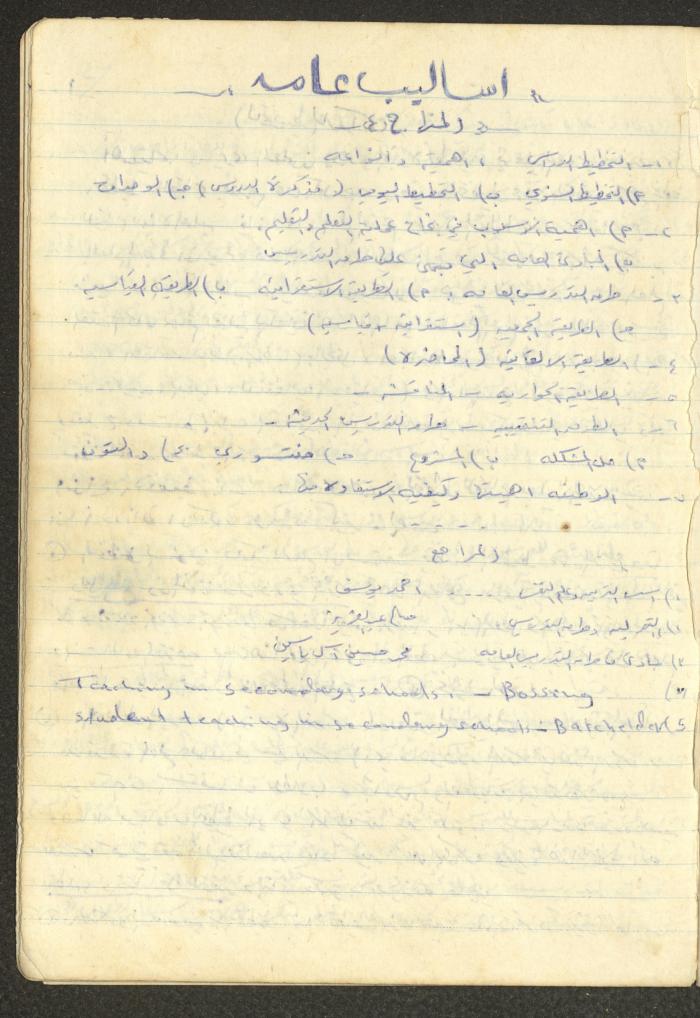 " اساليب عامه "
« المنهاج »
١- التخطيط الدراسي : اهميته وانواعه
أ) التخطيط السنوي ب) التخطيط اليومي (مذكرة الدروس) ج) الوحدات
٢- أ) اهمية الاسلوب في نجاح عملية التعلم والتعليم.
ب) المبادئ العامه التي تبنى عليها طرق التدريس
٣- طرق التدريس العامه : أ) الطريقة الاستقرائيه ب) الطريقة القياسية.
ج) الطريقة الجمعية (استقرائية + قياسية)
٤- الطريقة الالقائية (المحاضرة)
٥- الطريقة الحوارية - المناقشه -
٦- الطرق التنقيبيه - طرق التدريس الحديثه -
أ) حل المشكله ب) المشروع ج) منتسوري د) دالتون.
٧- الوظيفه اهميتها وكيفية الاستفادة منها
المراجع
١) اسس التربيه وعلم النفس ---- احمد يوسف
٢) التربيه وطرق التدريس صالح عبد العزيز
٣) مبادئ طرق التدريس العامه محمد حسين آل ياسين
٤) Teaching in secondary schools. - Bossing
5) student teaching in secondary schools - Batchelder